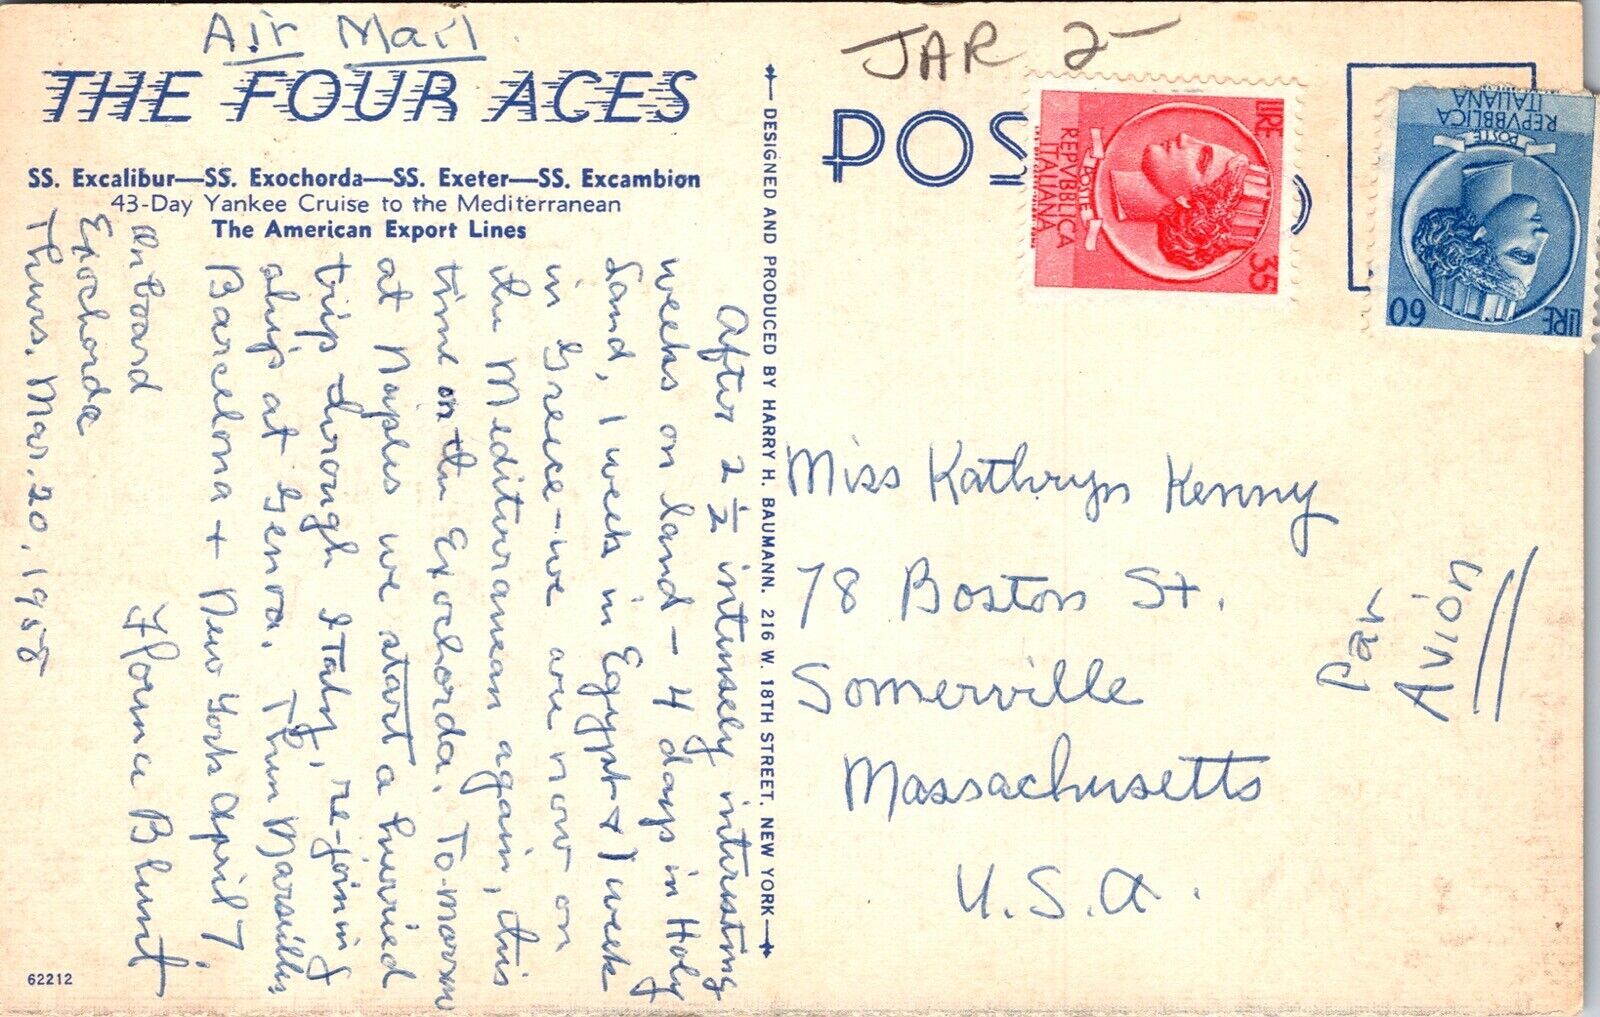 Air Mail
THE FOUR ACES
SS. Excalibur—SS. Exochorda—SS. Exeter—SS. Excambion
43-Day Yankee Cruise to the Mediterranean
The American Export Lines
On board
Exochorda
Thurs. Mar. 20, 1958
After 2 1/2 intensely interesting
weeks on land - 4 days in Holy
Land, 1 week in Egypt & 1 week
in Greece - we are now on
the Mediterranean again, this
time on the Exochorda. To-morrow
at Naples we start a hurried
trip through Italy, re-joining
ship at Genoa. Then Marseilles,
Barcelona + New York April 7.
Florence Blunt
62212
DESIGNED AND PRODUCED BY HARRY H. BAUMANN. 216 W. 18TH STREET. NEW YORK
JAR 2-
POS
LIRE 35
POSTE
REPVBBLICA
ITALIANA
LIRE 60
POSTE
REPVBBLICA
ITALIANA
Miss Kathryn Kenny
78 Boston St.
Somerville
Massachusetts
U.S.A.
Par
Avión